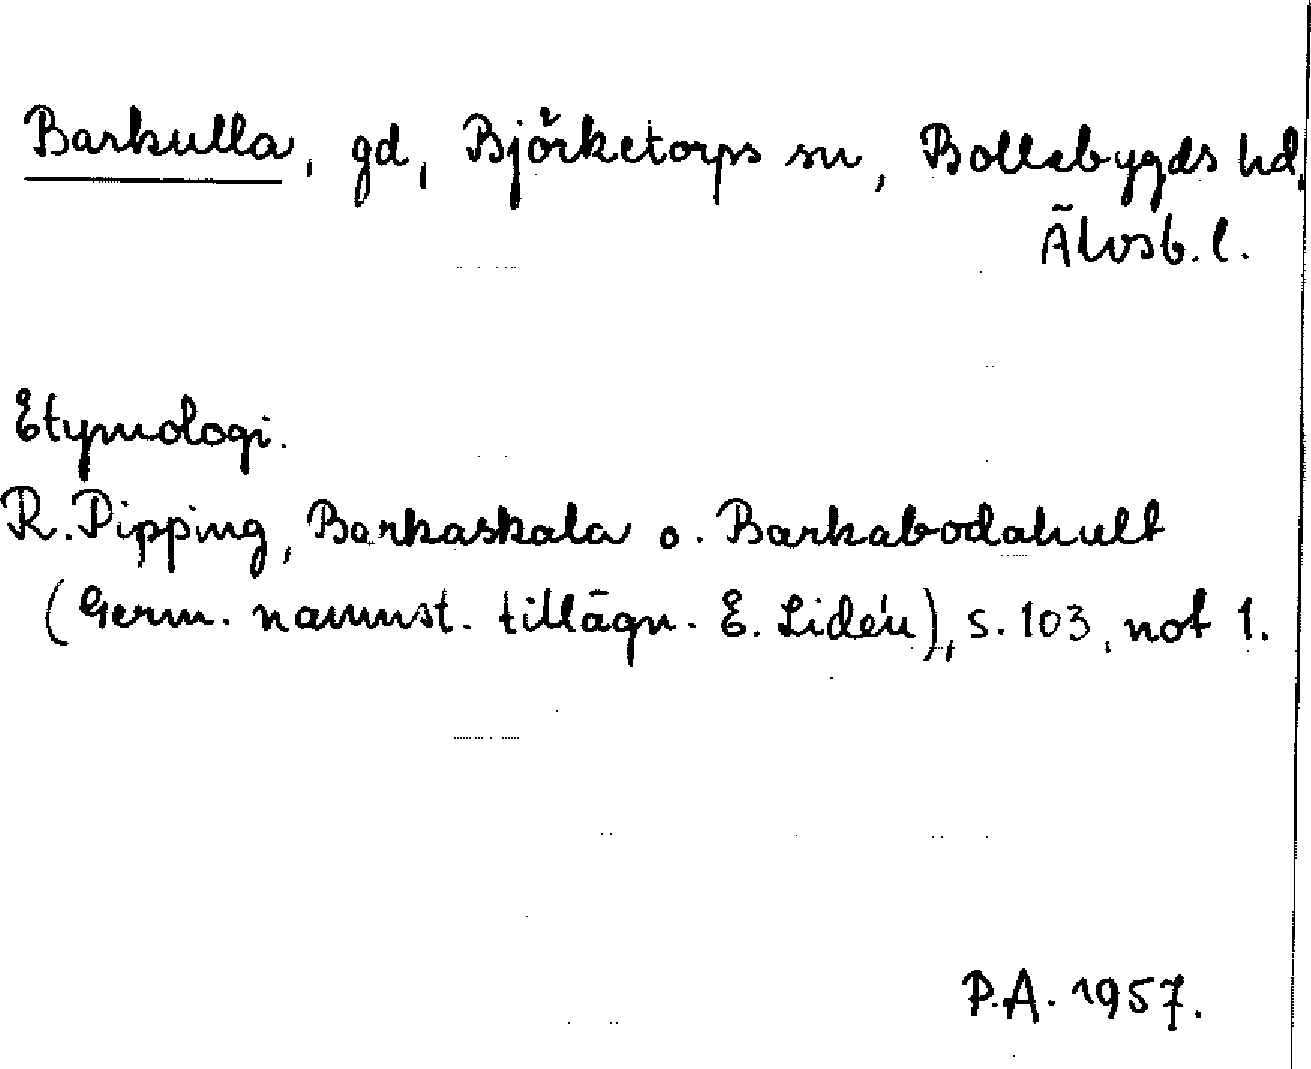 Barkulla, gd, Björketorps sn, Bollebygds hd,
Älvsb. l.
Etymologi.
R. Pipping, Barkaskala o. Barkabodahult
(Germ. namnst. tillägn. E. Lidén), s. 103, not 1.
P.A. 1957.